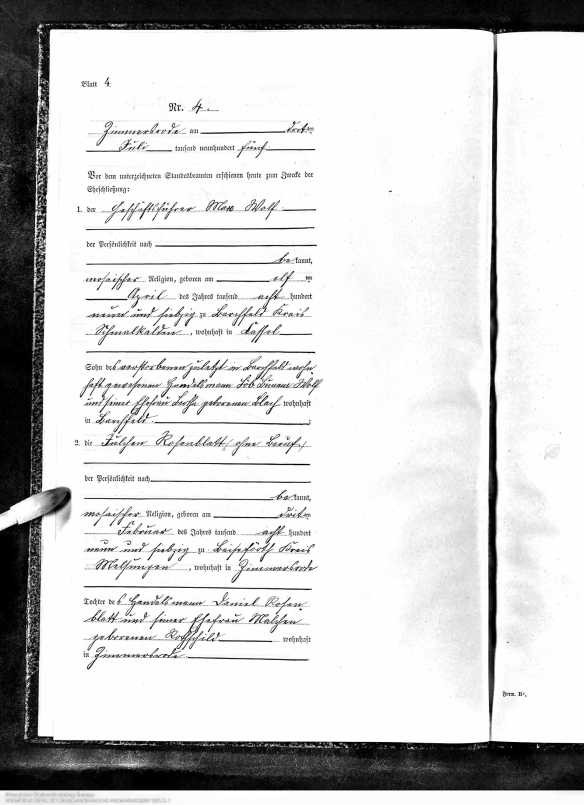 Blatt 4
Nr. 4.
Zimmersrode am Dritten
Juli tausend neunhundert fünf
Vor dem unterzeichneten Standesbeamten erschienen heute zum Zwecke der
Eheschließung:
1. der Geschäftsführer Max Wolf
der Persönlichkeit nach
bekannt,
mosaischer Religion, geboren am elf ten
April des Jahres tausend acht hundert
neun und siebzig zu Barchfeld Kreis
Schmalkalden, wohnhaft in Cassel
Sohn des verstorbenen zuletzt in Barchfeld wohn
haft gewesenen Handelsmann Wolf
und seiner Ehefrau geborenen wohnhaft
in Barchfeld;
2. die Julchen Rosenblatt, ohne Beruf,
der Persönlichkeit nach
bekannt,
mosaischer Religion, geboren am Dritten
Februar des Jahres tausend acht hundert
neun und siebzig zu Beiseförth Kreis
Melsungen, wohnhaft in Zimmersrode
Tochter des Handelsmann Daniel Rosen
blatt und seiner Ehefrau Malchen
geborenen Rothschild wohnhaft
in Zimmersrode
Form. B.